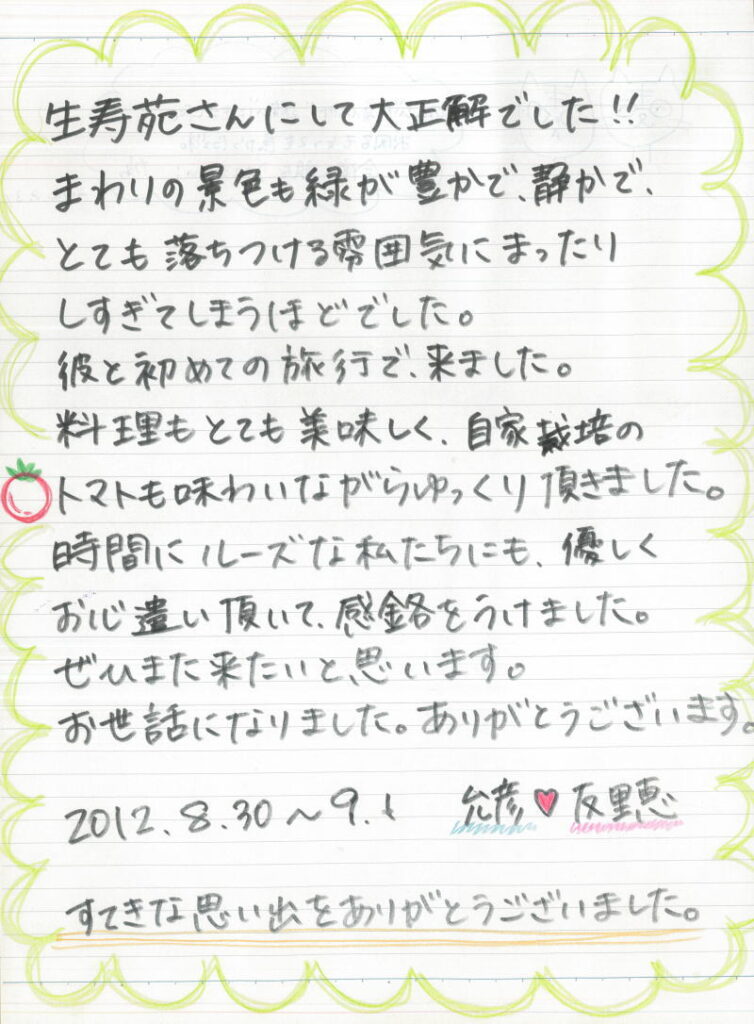 生寿苑さんにして大正解でした!!
まわりの景色も緑が豊かで、静かで、
とても落ちつける雰囲気にまったり
しすぎてしまうほどでした。
彼と初めての旅行で、来ました。
料理もとても美味しく、自家栽培の
トマトも味わいながらゆっくり頂きました。
時間にルーズな私たちにも、優しく
お心遣い頂いて、感銘をうけました。
ぜひまた来たいと、思います。
お世話になりました。ありがとうございます。
2012.8.30～9.1 允彦♥友里恵
すてきな思い出をありがとうございました。